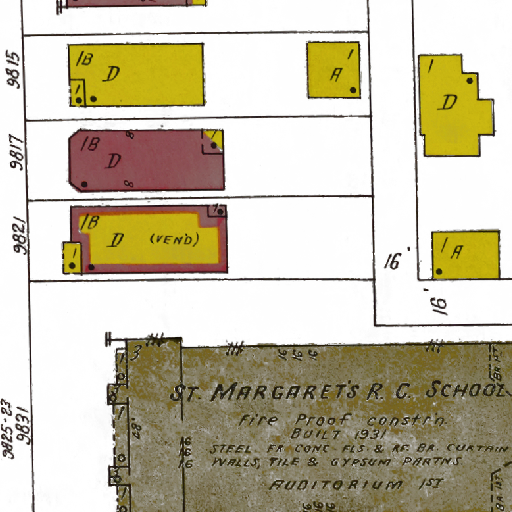 9815
1B
D
1
1
A
1
D
9817
1B
D
8
8
1
9821
1B
D (VEN'D)
1
1
16'
1
A
16'
9825-23
9831
3
16
16
16
ST. MARGARET'S R. C. SCHOOL
Fire Proof constr'n.
BUILT 1931
STEEL FR. CONC. FLS & RF. BR. CURTAIN
WALLS, TILE & GYPSUM PARTNS
AUDITORIUM 1ST
48'
16
16
16
16
16
16